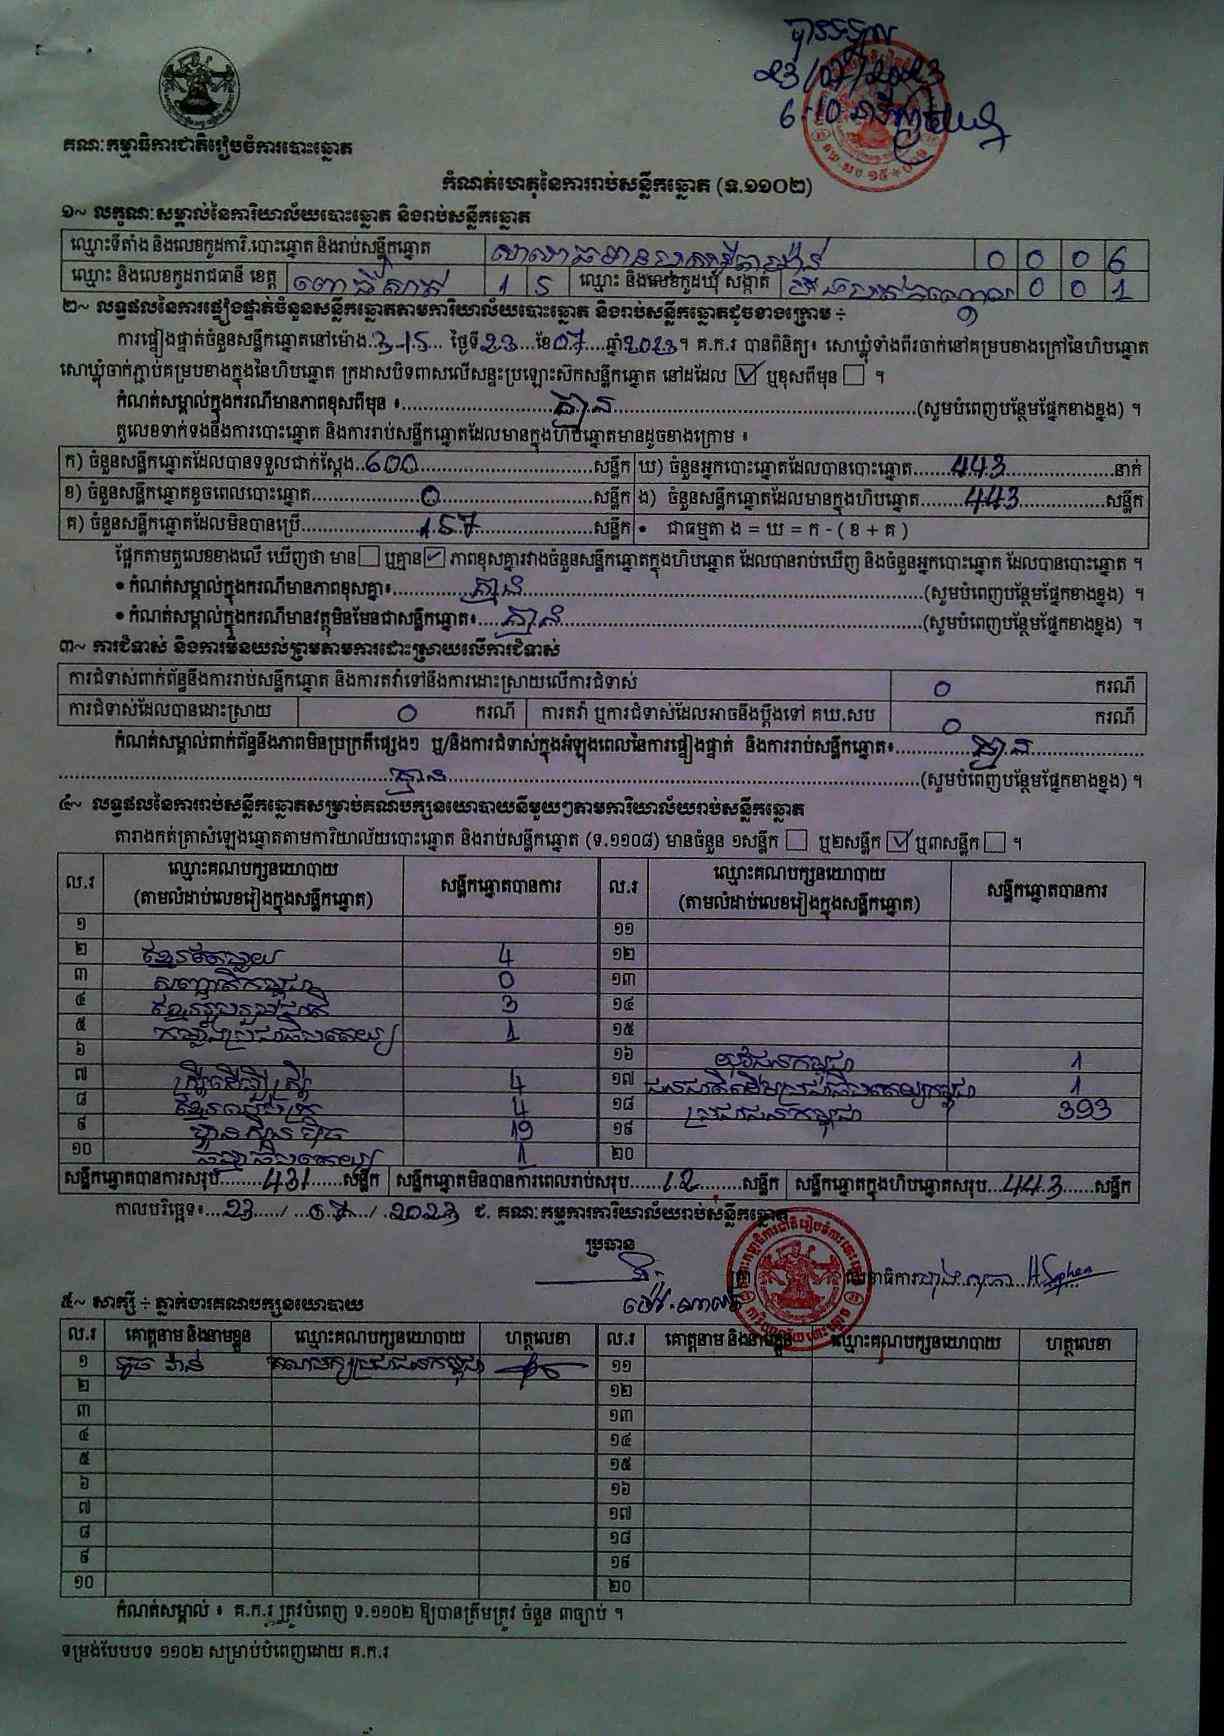 បានទទួល
23/07/2023
6:10 នាទី
គណៈកម្មាធិការជាតិរៀបចំការបោះឆ្នោត
កំណត់ហេតុនៃការរាប់សន្លឹកឆ្នោត (ទ.១១០២)
១~ លក្ខណៈសម្គាល់នៃការិយាល័យបោះឆ្នោត និងរាប់សន្លឹកឆ្នោត
ឈ្មោះទីតាំង និងលេខកូដការិ.បោះឆ្នោត និងរាប់សន្លឹកឆ្នោត 0 0 0 6
ឈ្មោះ និងលេខកូដរាជធានី ខេត្ត ពោធិ៍សាត់ 1 5 ឈ្មោះ និងលេខកូដឃុំ សង្កាត់ 0 0 1
២~ លទ្ធផលនៃការផ្ទៀងផ្ទាត់ចំនួនសន្លឹកឆ្នោតតាមការិយាល័យបោះឆ្នោត និងរាប់សន្លឹកឆ្នោតដូចខាងក្រោម ÷
ការផ្ទៀងផ្ទាត់ចំនួនសន្លឹកឆ្នោតនៅម៉ោង..3-15... ថ្ងៃទី23...ខែ07....ឆ្នាំ2023។ គ.ក.រ បានពិនិត្យ៖ សោឃ្លុំទាំងពីរចាក់នៅគម្របខាងក្រៅនៃហិបឆ្នោត
សោឃ្លុំចាក់ភ្ជាប់គម្របខាងក្នុងនៃហិបឆ្នោត ក្រដាសបិទពាសលើសន្ទះប្រឡោះស៊កសន្លឹកឆ្នោត នៅដដែល ☑ ឬខុសពីមុន ☐ ។
កំណត់សម្គាល់ក្នុងករណីមានភាពខុសពីមុន ៖ គ្មាន (សូមបំពេញបន្ថែមផ្នែកខាងខ្នង) ។
តួលេខទាក់ទងនឹងការបោះឆ្នោត និងការរាប់សន្លឹកឆ្នោតដែលមានក្នុងហិបឆ្នោតមានដូចខាងក្រោម ៖
ក) ចំនួនសន្លឹកឆ្នោតដែលបានទទួលជាក់ស្តែង..600 សន្លឹក ឃ) ចំនួនអ្នកបោះឆ្នោតដែលបានបោះឆ្នោត 443 នាក់
ខ) ចំនួនសន្លឹកឆ្នោតខូចពេលបោះឆ្នោត 0 សន្លឹក ង) ចំនួនសន្លឹកឆ្នោតដែលមានក្នុងហិបឆ្នោត 443 សន្លឹក
គ) ចំនួនសន្លឹកឆ្នោតដែលមិនបានប្រើ 157 សន្លឹក • ជាធម្មតា ង = ឃ = ក - ( ខ + គ )
ផ្អែកតាមតួលេខខាងលើ ឃើញថា មាន ☐ ឬគ្មាន ☑ ភាពខុសគ្នារវាងចំនួនសន្លឹកឆ្នោតក្នុងហិបឆ្នោត ដែលបានរាប់ឃើញ និងចំនួនអ្នកបោះឆ្នោត ដែលបានបោះឆ្នោត ។
• កំណត់សម្គាល់ក្នុងករណីមានភាពខុសគ្នា៖ គ្មាន (សូមបំពេញបន្ថែមផ្នែកខាងខ្នង) ។
• កំណត់សម្គាល់ក្នុងករណីមានវត្ថុមិនមែនជាសន្លឹកឆ្នោត៖ គ្មាន (សូមបំពេញបន្ថែមផ្នែកខាងខ្នង) ។
៣~ ការជំទាស់ និងការមិនយល់ព្រមតាមការដោះស្រាយលើការជំទាស់
ការជំទាស់ពាក់ព័ន្ធនឹងការរាប់សន្លឹកឆ្នោត និងការតវ៉ាទៅនឹងការដោះស្រាយលើការជំទាស់ 0 ករណី
ការជំទាស់ដែលបានដោះស្រាយ 0 ករណី ការតវ៉ា ឬការជំទាស់ដែលអាចនឹងប្តឹងទៅ គឃ.សប 0 ករណី
កំណត់សម្គាល់ពាក់ព័ន្ធនឹងភាពមិនប្រក្រតីផ្សេងៗ ឬ/និងការជំទាស់ក្នុងអំឡុងពេលនៃការផ្ទៀងផ្ទាត់ និងការរាប់សន្លឹកឆ្នោត៖ គ្មាន
គ្មាន (សូមបំពេញបន្ថែមផ្នែកខាងខ្នង) ។
៤~ លទ្ធផលនៃការរាប់សន្លឹកឆ្នោតសម្រាប់គណបក្សនយោបាយនីមួយៗតាមការិយាល័យរាប់សន្លឹកឆ្នោត
តារាងកត់ត្រាសំឡេងឆ្នោតតាមការិយាល័យបោះឆ្នោត និងរាប់សន្លឹកឆ្នោត (ទ.១១០៨) មានចំនួន ១សន្លឹក ☐ ឬ២សន្លឹក ☑ ឬ៣សន្លឹក ☐ ។
ល.រ ឈ្មោះគណបក្សនយោបាយ (តាមលំដាប់លេខរៀងក្នុងសន្លឹកឆ្នោត) សន្លឹកឆ្នោតបានការ ល.រ ឈ្មោះគណបក្សនយោបាយ (តាមលំដាប់លេខរៀងក្នុងសន្លឹកឆ្នោត) សន្លឹកឆ្នោតបានការ
១ ១១
២ ខ្មែរតែមួយ 4 ១២
៣ សញ្ជាតិកម្ពុជា 0 ១៣
៤ ខ្មែររួបរួមជាតិ 3 ១៤
៥ កម្លាំងប្រជាធិបតេយ្យ 1 ១៥
៦ ១៦ យុវជនកម្ពុជា 1
៧ ស្ត្រីដើម្បីស្ត្រី 4 ១៧ ជនជាតិដើមប្រជាធិបតេយ្យកម្ពុជា 1
៨ ខ្មែរអភិរក្ស 4 ១៨ ប្រជាជនកម្ពុជា 393
៩ ហ្វ៊ុនស៊ិនប៉ិច 19 ១៩
១០ ធម្មាធិបតេយ្យ 1 ២០
សន្លឹកឆ្នោតបានការសរុប 431 សន្លឹក សន្លឹកឆ្នោតមិនបានការពេលរាប់សរុប 12 សន្លឹក សន្លឹកឆ្នោតក្នុងហិបឆ្នោតសរុប 443 សន្លឹក
កាលបរិច្ឆេទ៖ 23 / 07 / 2023 ជ. គណៈកម្មការការិយាល័យរាប់សន្លឹកឆ្នោត
ប្រធាន
លេខាធិការ
៥~ សាក្សី ÷ ភ្នាក់ងារគណបក្សនយោបាយ
ល.រ គោត្តនាម និងនាមខ្លួន ឈ្មោះគណបក្សនយោបាយ ហត្ថលេខា ល.រ គោត្តនាម និងនាមខ្លួន ឈ្មោះគណបក្សនយោបាយ ហត្ថលេខា
១ ទូច វ៉ាន់ គណបក្សប្រជាជនកម្ពុជា ១១
២ ១២
៣ ១៣
៤ ១៤
៥ ១៥
៦ ១៦
៧ ១៧
៨ ១៨
៩ ១៩
១០ ២០
កំណត់សម្គាល់ ៖ គ.ក.រ ត្រូវបំពេញ ទ.១១០២ ឱ្យបានត្រឹមត្រូវ ចំនួន ៣ច្បាប់ ។
ទម្រង់បែបបទ ១១០២ សម្រាប់បំពេញដោយ គ.ក.រ